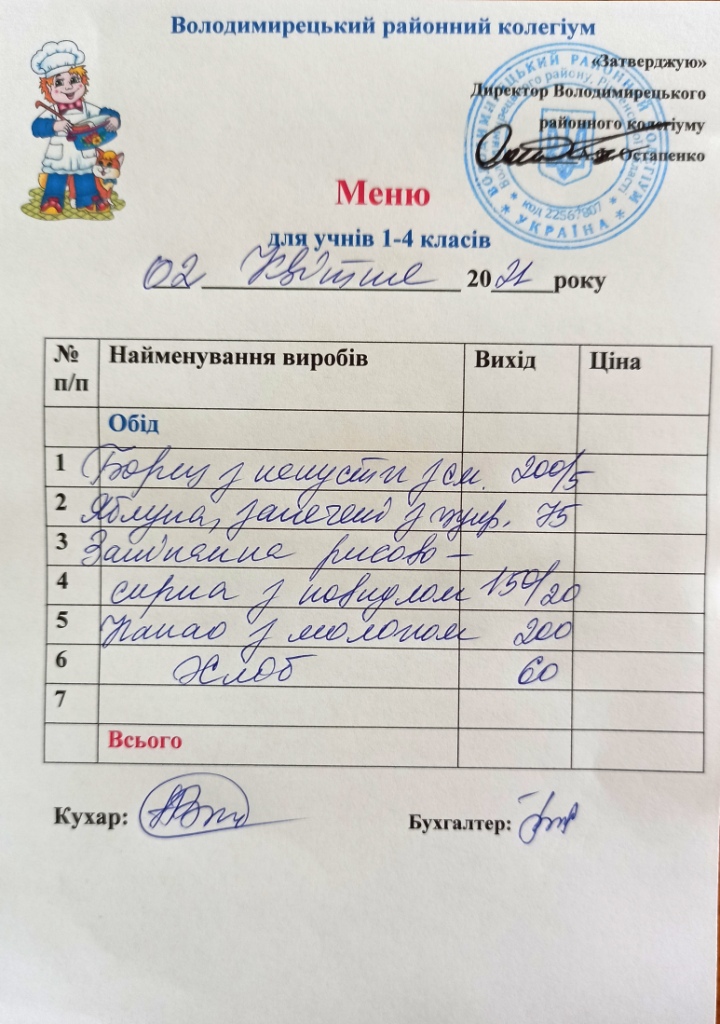 Володимирецький районний колегіум
«Затверджую»
Директор Володимирецького
районного колегіуму
Остапенко
Меню
для учнів 1-4 класів
02 Квітня 2021 року
№ п/п Найменування виробів Вихід Ціна
Обід
1 Борщ з капусти з см. 200/5
2 Яблука, запечені з цукр. 75
3 Запіканка рисово-
4 сирна з повидлом 150/20
5 Какао з молоком 200
6 Хліб 60
7
Всього
Кухар: Бухгалтер:
код 22567907
УКРАЇНА